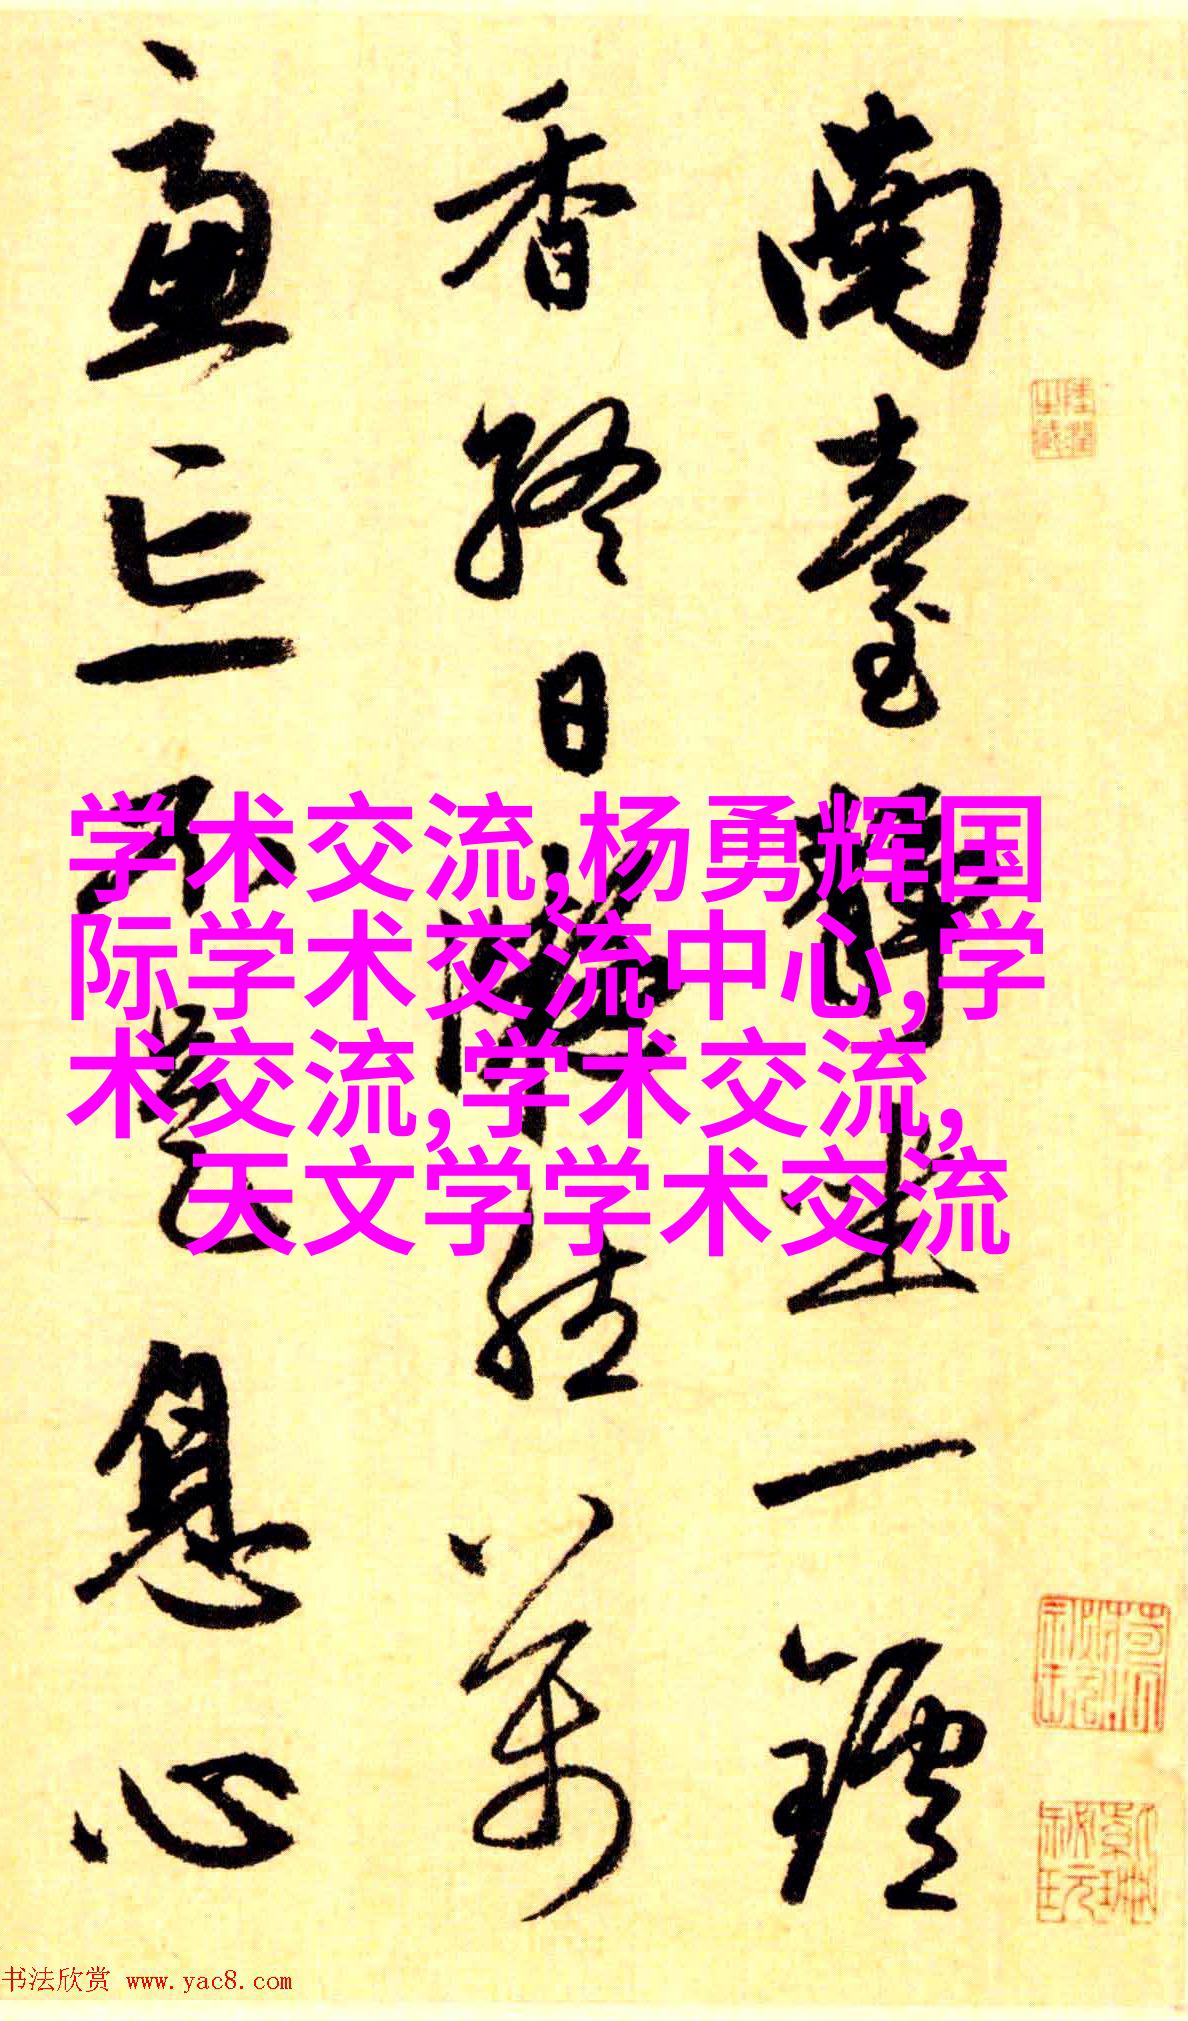 南臺靜坐一鑪
香終日凝然萬
慮忘不是息心
学术交流,杨勇辉国
际学术交流中心,学
术交流,学术交流,
天文学学术交流
书法欣赏 www.yac8.com